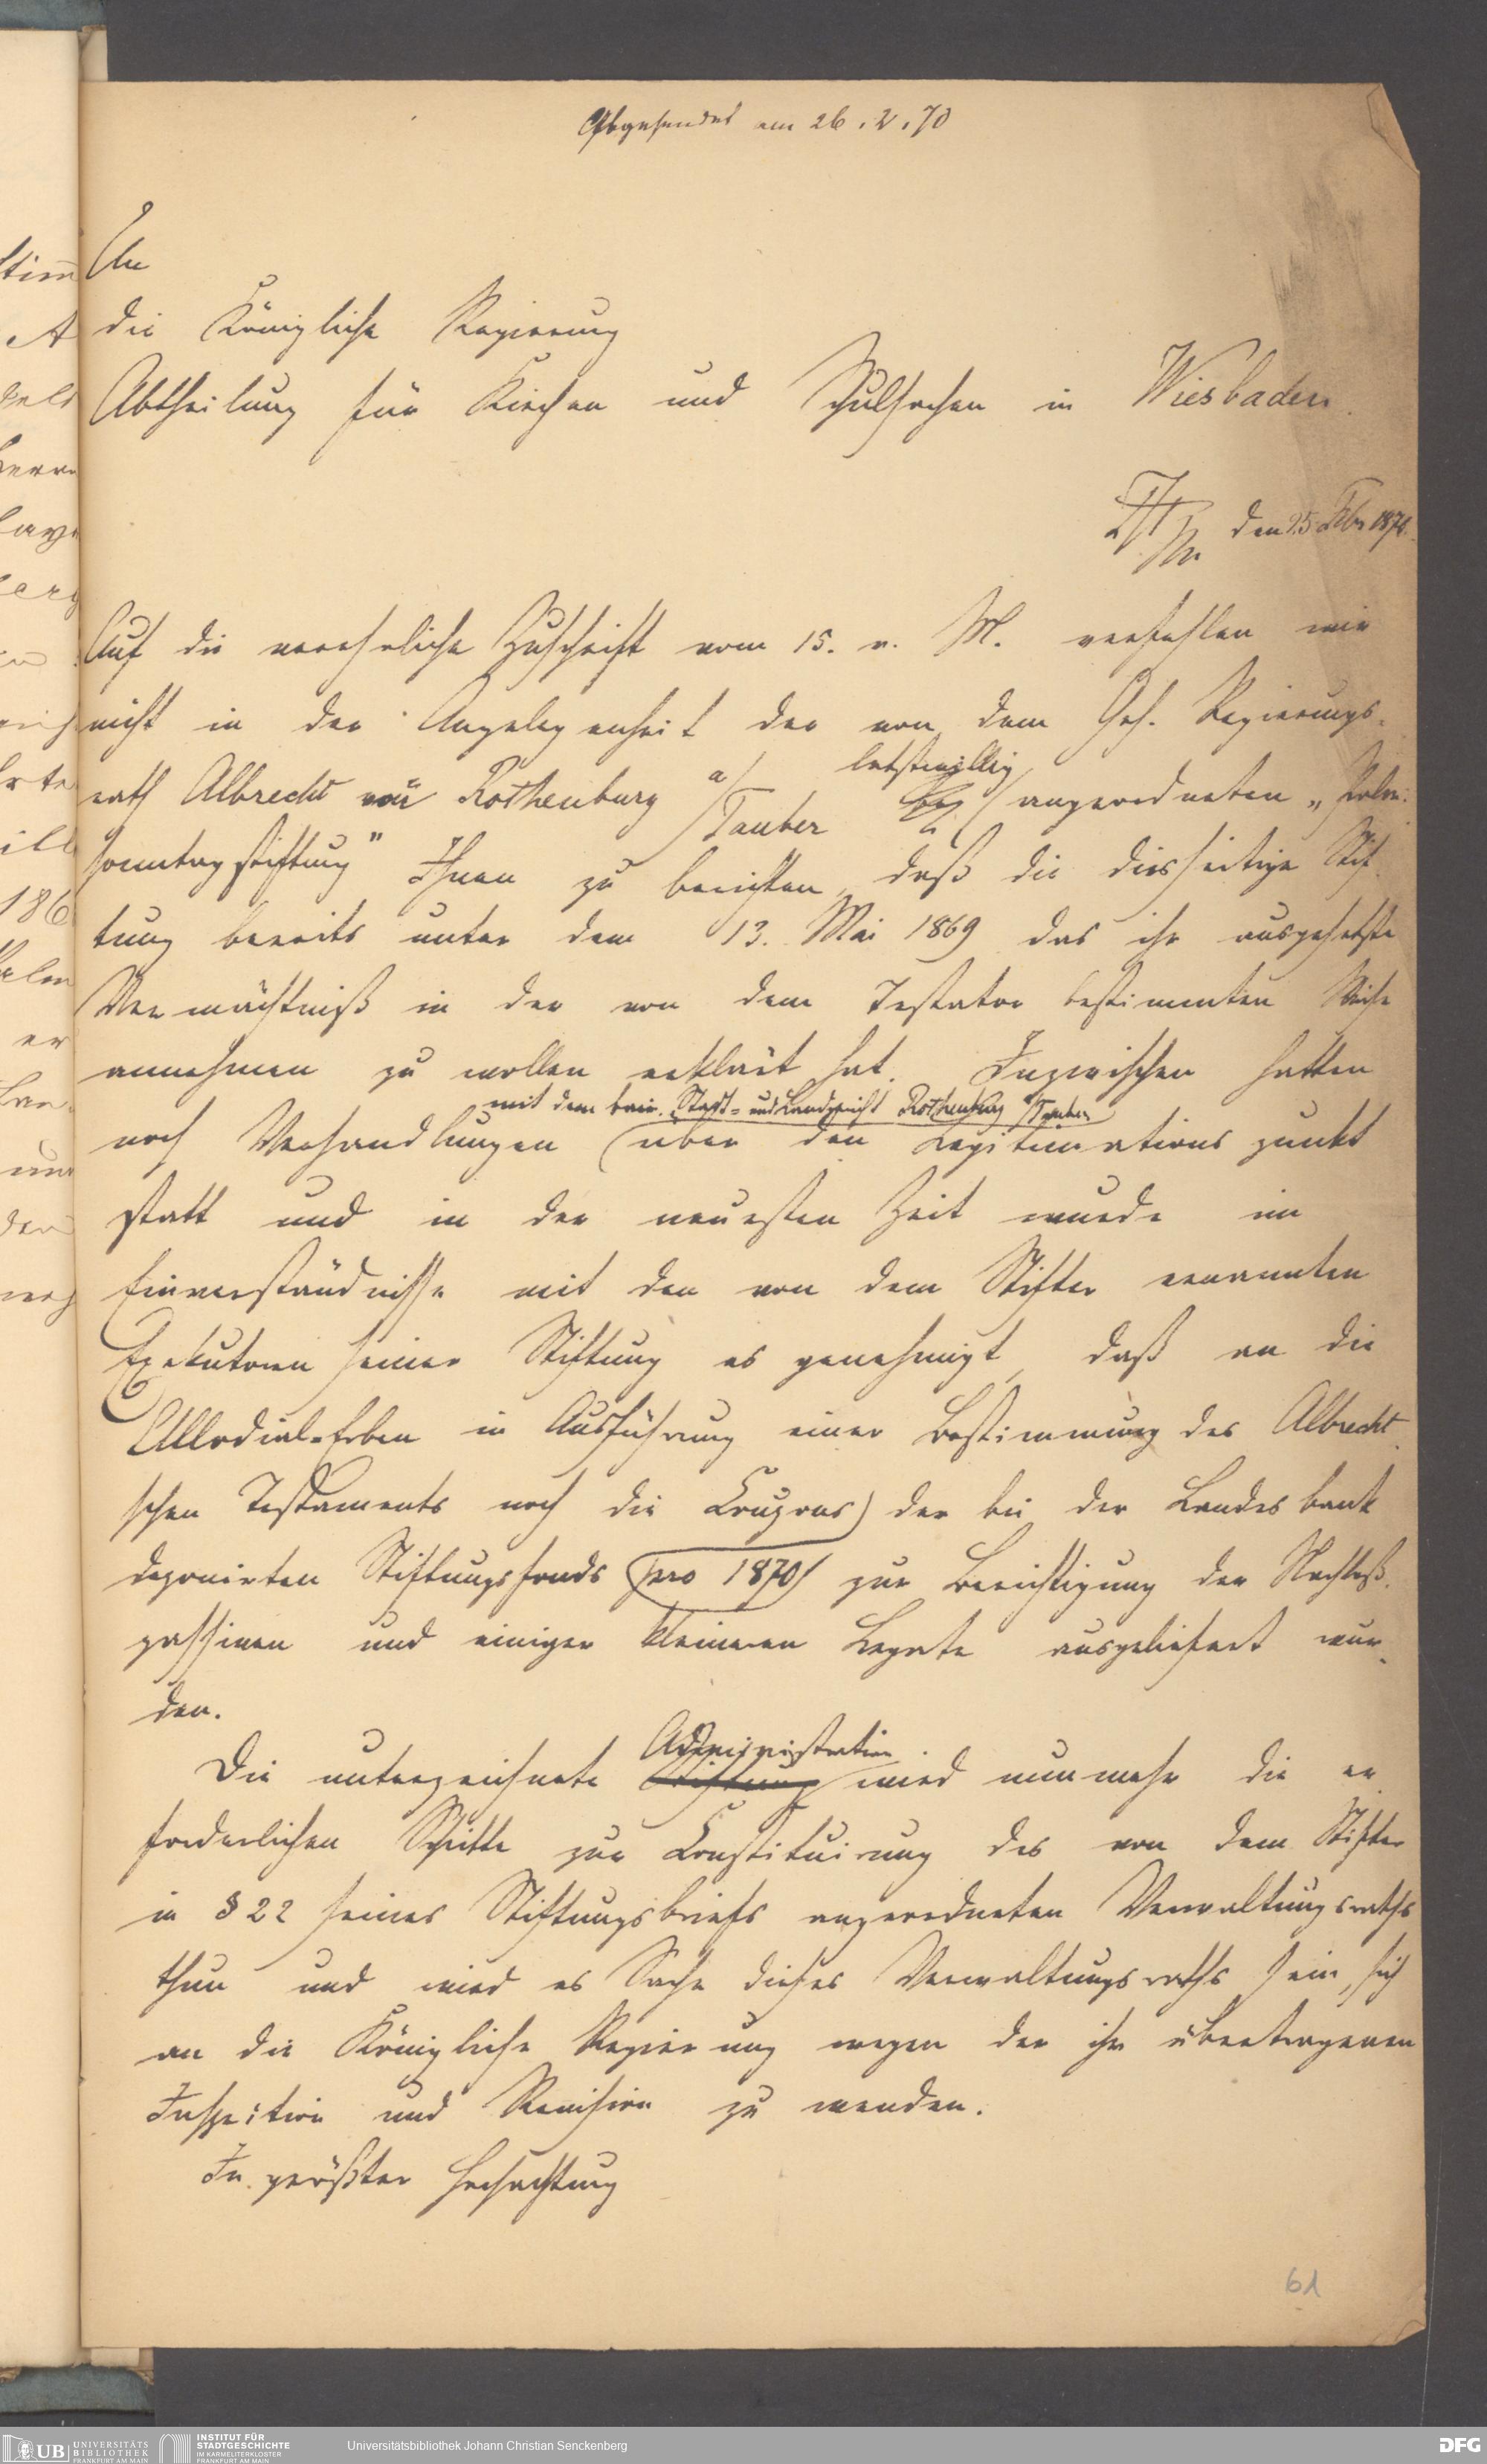 Abgesendet am 26.2.70
An
die Königliche Regierung
Abtheilung für Kirchen und Schulsachen in Wiesbaden.
Ff/M den 25 Febr 1870.
Auf die verehrliche Zuschrift vom 15. v. M. verfehlen wir
nicht in der Angelegenheit der von dem Geh. Regierungs-
rath Albrecht von Rothenburg a/Tauber letztwillig angeordneten „Palm-
sonntagstiftung" Ihnen zu berichten, daß die diesseitige Stif-
tung bereits unter dem 13. Mai 1869 das ihr ausgesetzte
Vermächtniß in der von dem Testator bestimmten Weise
annehmen zu wollen erklärt hat. Inzwischen hatten
mit dem bair. Stadt- und Landgericht Rothenburg a/Tauber
noch Verhandlungen über den Legitimationspunkt
statt und in der neuesten Zeit wurde im
Einverständnisse mit den von dem Stifter ernannten
Exekutoren seiner Stiftung es genehmigt, daß an die
Allodial-Erben in Ausführung einer Bestimmung des Albrecht-
schen Testaments noch die Coupons der bei der Landesbank
deponirten Stiftungsfonds pro 1870 zur Berichtigung der Nachlaß-
passiven und einiger kleineren Legate ausgeliefert wur-
den.
Administration
Die unterzeichnete Stiftung wird nunmehr die er-
forderlichen Schritte zur Constituirung des von dem Stifter
in § 22 seines Stiftungsbriefs angeordneten Verwaltungsraths
thun und wird es Sache dieses Verwaltungsraths sein, sich
an die Königliche Regierung wegen der ihr übertragenen
Inspection und Revision zu wenden.
In größter Hochachtung
61
UB UNIVERSITÄTS
BIBLIOTHEK
FRANKFURT AM MAIN
INSTITUT FÜR
STADTGESCHICHTE
IM KARMELITERKLOSTER
FRANKFURT AM MAIN
Universitätsbibliothek Johann Christian Senckenberg
DFG